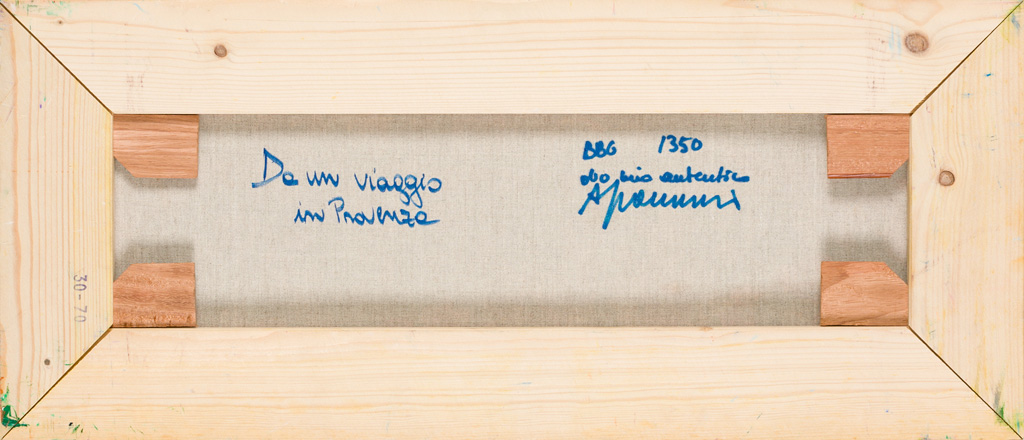 Da un viaggio
in Provenza
BBG 1350
mio autentico
30-70